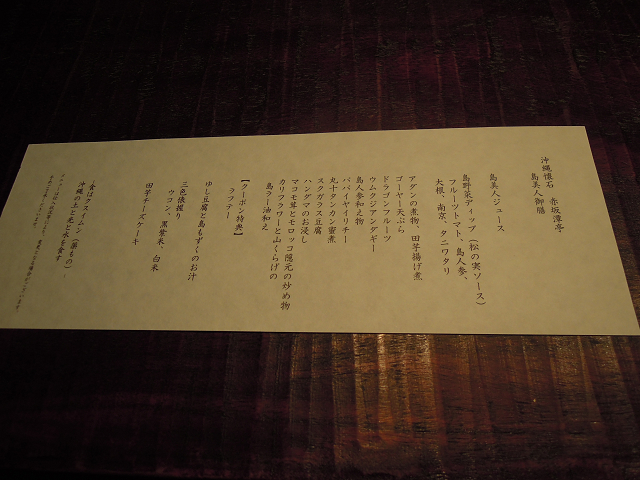 沖縄懐石 赤坂潭亭
島美人御膳
島美人ジュース
島野菜ディップ（松の実ソース）
フルーツトマト、島人参、
大根、南京、タニワタリ
アダンの煮物、田芋揚げ煮
ゴーヤー天ぷら
ドラゴンフルーツ
ウムクジアンダギー
島人参和え物
パパイヤイリチー
丸十タンカン蜜煮
スクガラス豆腐
ハンダマのお浸し
マコモ茸とモロッコ隠元の炒め物
カリフラワーと山くらげの
島ラー油和え
【クーポン特典】
ラフテー
ゆし豆腐と島もずくのお汁
三色俵握り
ウコン、黒紫米、白米
田芋チーズケーキ
～食はクスイムン（薬もの）
沖縄の土と光と水を食す ～